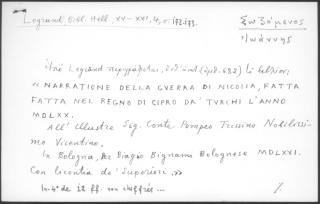 Legrand, Bibl. Hell., XV-XVI, 4, σ. 172-173.
Σωζόμενος
Ἰωάννης
Legrand περιγράφεται, ἀριθ. 682) τὸ βιβλίον:
« NARRATIONE DELLA GVERRA DI NICOSIA, FATTA
FATTA NEL REGNO DI CIPRO DA' TVRCHI L'ANNO
MDLXX.
All' Illustre Sig. Conte Pompeo Trissino Nobilissi-
mo Vicentino.
In Bologna, Biagio Bignami Bolognese MDLXXI.
Con licentia de' Superiori. »
In-4° de 12 ff. non chiffrés ...